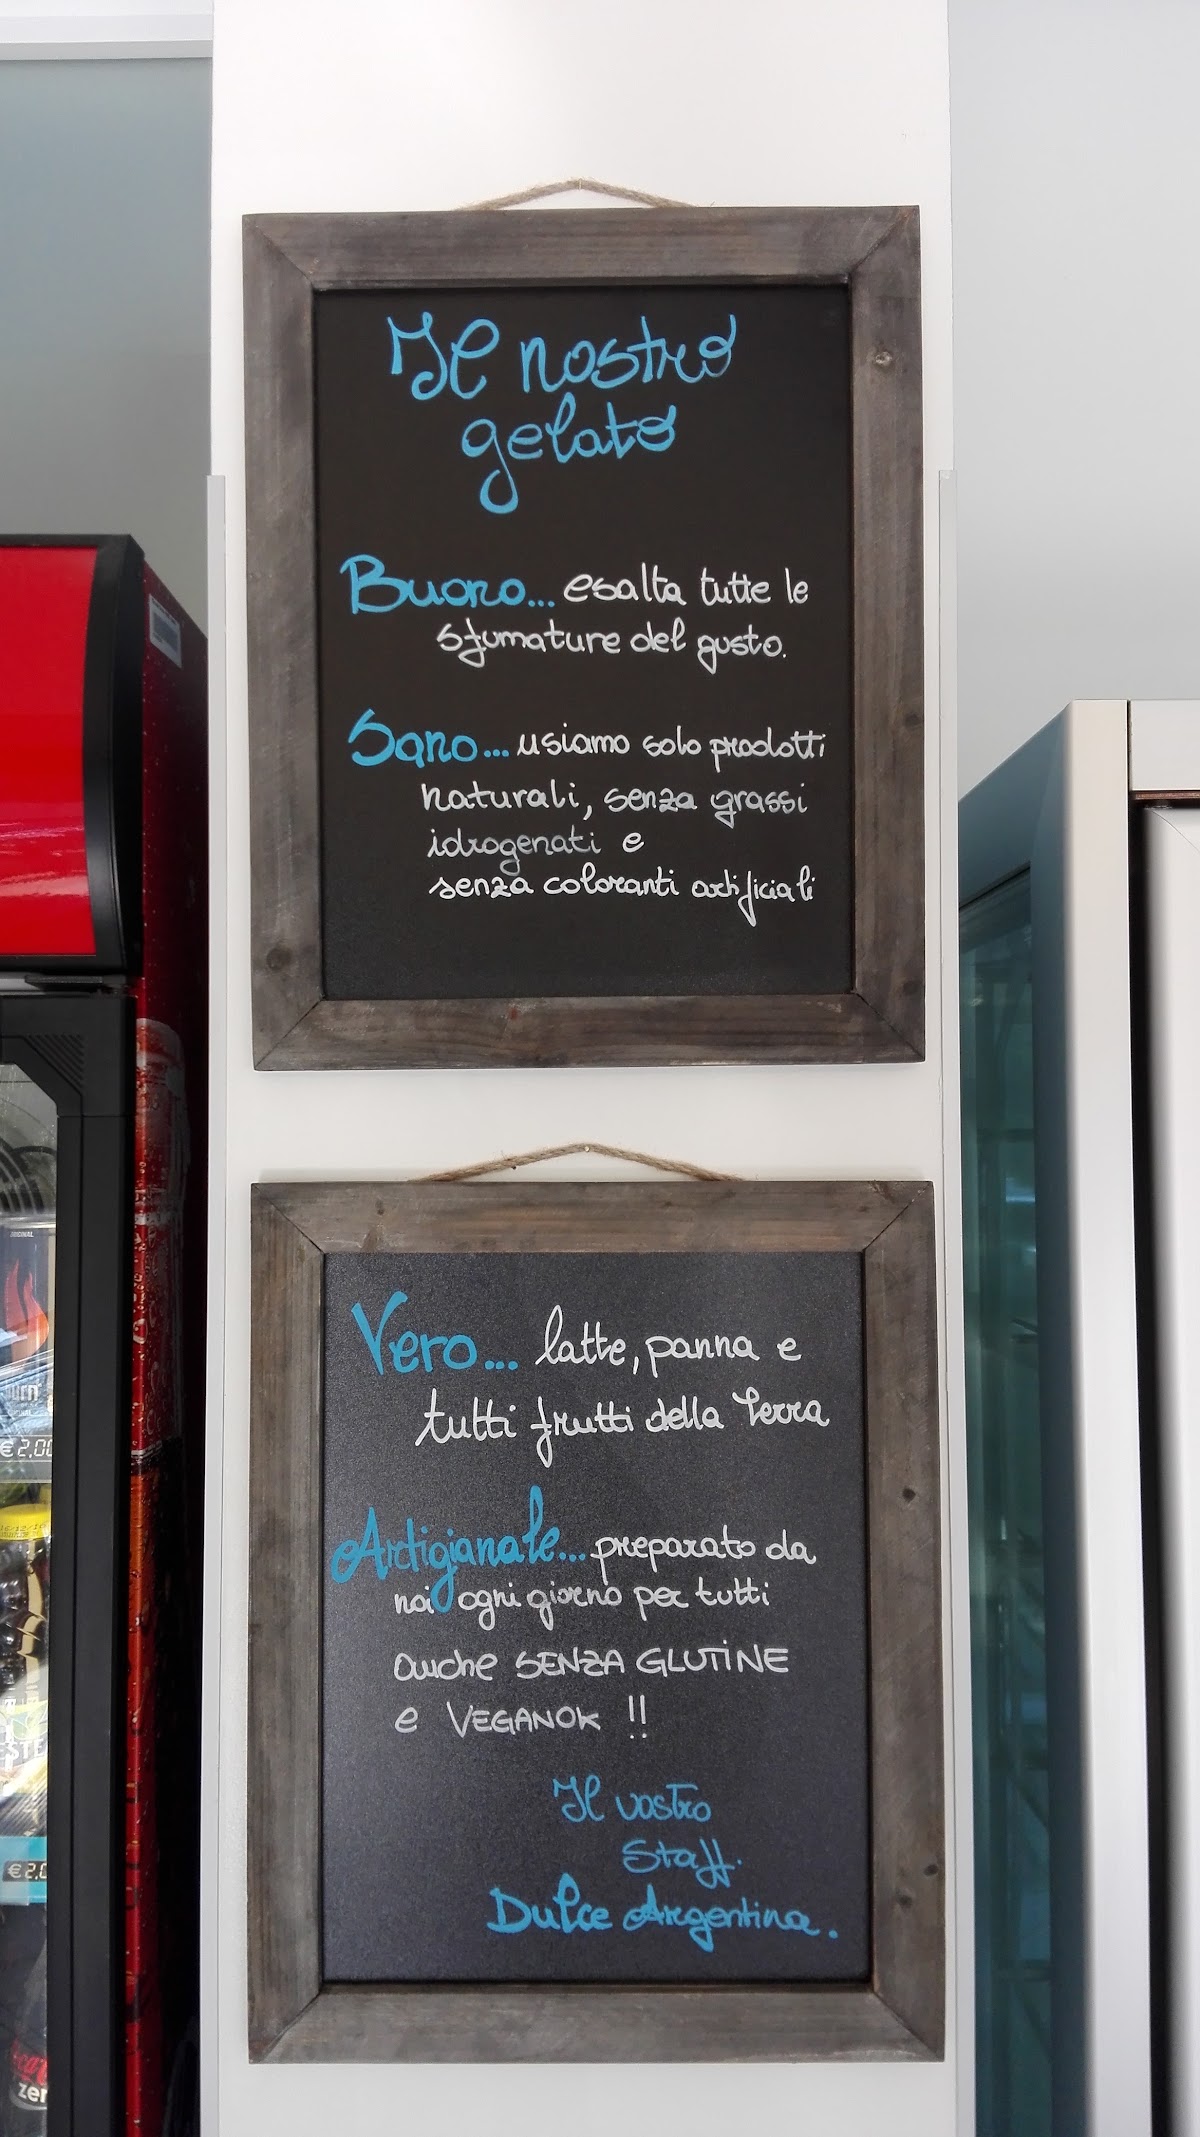 Il nostro
gelato
Buono... esalta tutte le
sfumature del gusto.
Sano... usiamo solo prodotti
naturali, senza grassi
idrogenati e
senza coloranti artificiali
Vero... latte, panna e
tutti frutti della Terra
Artigianale... preparato da
noi ogni giorno per tutti
anche SENZA GLUTINE
e VEGANOK !!
Il vostro
Staff.
Dulce Argentina.
ORIGINAL
€ 2,00
zero